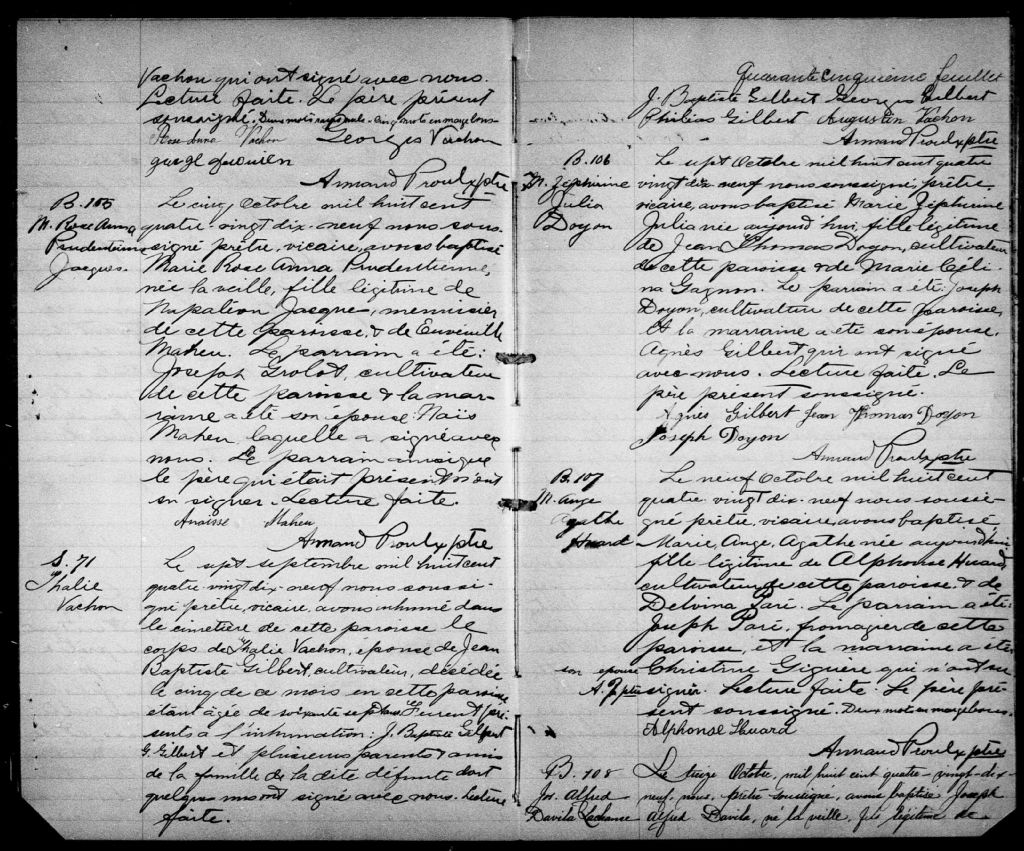 Vachon qui ont signé avec nous.
Lecture faite. Le père présent
soussigné. Deux mots rayés nuls. Cinq mots en marge bons.
Rose Anna Vachon Georges Vachon
Armand Proulx ptre
B. 105
M. Rose Anna
Prudentienne
Jacques.
Le cinq Octobre mil huit cent
quatre-vingt dix-neuf nous sous-
signé prêtre, vicaire, avons baptisé
Marie Rose Anna Prudentienne,
née la veille, fille légitime de
Napoléon Jacques, menuisier
de cette paroisse, & de
Maheu. Le parrain a été:
Joseph Grolot, cultivateur
de cette paroisse & la mar-
raine a été son épouse Naïs
Maheu, laquelle a signé avec
nous. Le parrain ainsi que
le père qui était présent n'ont
su signer. Lecture faite.
Anaisse Maheu
Armand Proulx ptre
S. 71
Thalie
Vachon
Le sept septembre mil huit cent
quatre vingt dix-neuf nous soussi-
gné prêtre, vicaire, avons inhumé dans
le cimetière de cette paroisse le
corps de Thalie Vachon, épouse de Jean
Baptiste Gilbert, cultivateur, décédée
le cinq de ce mois en cette paroisse
étant âgée de soixante sept ans. Furent pré-
sents à l'inhumation: J. Baptiste Gilbert
G. Gilbert et plusieurs parents & amis
de la famille de la dite défunte dont
quelques uns ont signé avec nous. Lecture
faite.
Quarante cinquième feuillet
J. Baptiste Gilbert Georges Gilbert
Philias Gilbert Augustin Vachon
Armand Proulx ptre
B. 106
M. Zéphirine
Julia
Doyon
Le sept Octobre mil huit cent quatre
vingt dix-neuf nous soussigné, prêtre,
vicaire, avons baptisé Marie Zéphirine
Julia née aujourd'hui, fille légitime
de Jean Thomas Doyon, cultivateur
de cette paroisse & de Marie Céli-
na Gagnon. Le parrain a été: Joseph
Doyon, cultivateur de cette paroisse,
et la marraine a été son épouse,
Agnès Gilbert qui ont signé
avec nous. Lecture faite. Le
père présent soussigné.
Agnès Gilbert Jean Thomas Doyon
Joseph Doyon
Armand Proulx ptre
B. 107
M. Ange
Agathe
Huard
Le neuf Octobre mil huit cent
quatre vingt dix-neuf nous soussi-
gné prêtre, vicaire, avons baptisé
Marie, Ange, Agathe née aujourd'hui
fille légitime de Alphonse Huard
cultivateur de cette paroisse & de
Delvina Paré. Le parrain a été:
Joseph Paré, fromager de cette
paroisse, et la marraine a été
son épouse Christine Giguère qui n'ont su
A. P. ptre signer. Lecture faite. Le père pré-
sent soussigné. Deux mots en marge bons.
Alphonse Huard
Armand Proulx ptre
B. 108
Jos. Alfred
Davila Lachance
Le treize Octobre, mil huit cent quatre-vingt-dix-
neuf, nous, prêtre soussigné, avons baptisé Joseph
Alfred Davila, né la veille, fils légitime de